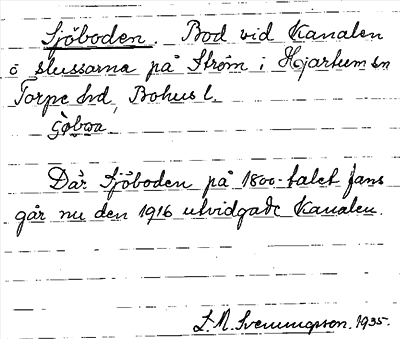 Sjöboden. Bod vid Kanalen
o slussarna på Ström i Hjartum sn
Torpe hd, Bohus l.
Där Sjöboden på 1800-talet fans
går nu den 1916 utvidgade Kanalen.
L. M. Svenungsson. 1935.